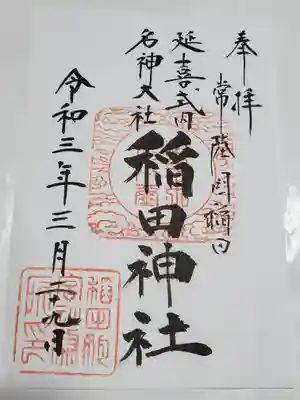 奉拝
常陸国稲田
延喜式内
名神大社
稲田神社
令和三年三月二十九日